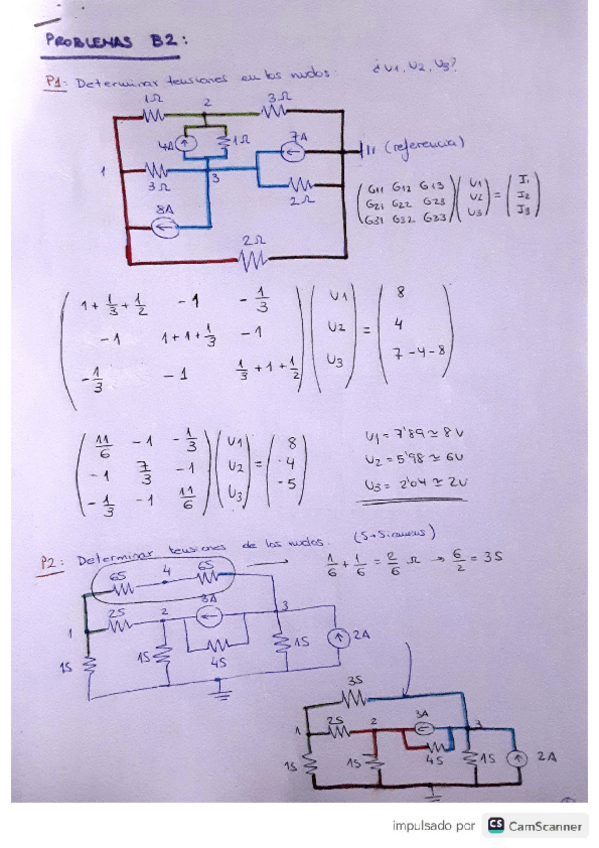 PROBLEMAS B2:
P1: Determinar tensiones en los nudos: ¿U1, U2, U3?
1Ω 2 3Ω
4A 1Ω 7A
(referencia)
1 3Ω 3 2Ω
8A
2Ω
(G11 G12 G13) (U1) = (I1)
(G21 G22 G23) (U2) (I2)
(G31 G32 G33) (U3) (I3)
1+1/3+1/2 -1 -1/3 U1 8
-1 1+1+1/3 -1 U2 = 4
-1/3 -1 1/3+1+1/2 U3 7-4-8
11/6 -1 -1/3 U1 8
-1 7/3 -1 U2 = 4
-1/3 -1 11/6 U3 -5
U1 = 7'89 ≃ 8V
U2 = 5'98 ≃ 6V
U3 = 2'04 ≃ 2V
P2: Determinar tensiones de los nudos. (S→Siemens)
1/6 + 1/6 = 2/6 Ω → 6/2 = 3S
6S 4 6S
1 2S 2 3A 3
1S 1S 4S 1S 2A
3S
1 2S 2 3A 3
1S 1S 4S 1S 2A
impulsado por CS CamScanner